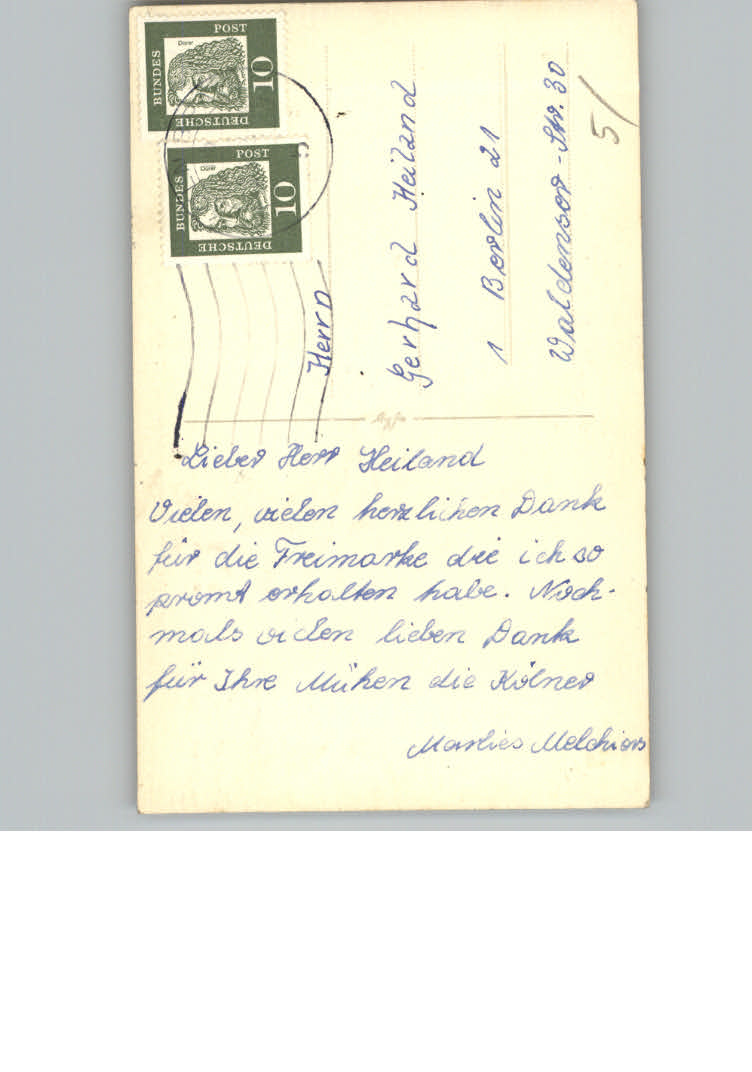 DEUTSCHE
BUNDES
POST
10
Dürer
DEUTSCHE
BUNDES
POST
10
Dürer
5/
Herrn
Gerhard Heiland
1 Berlin 21
Waldenser-Str. 30
Agfa
Lieber Herr Heiland
Vielen, vielen herzlichen Dank
für die Freimarke die ich so
promt erhalten habe. Noch-
mals vielen lieben Dank
für Ihre Mühen die Kölner
Marlies Melchiors